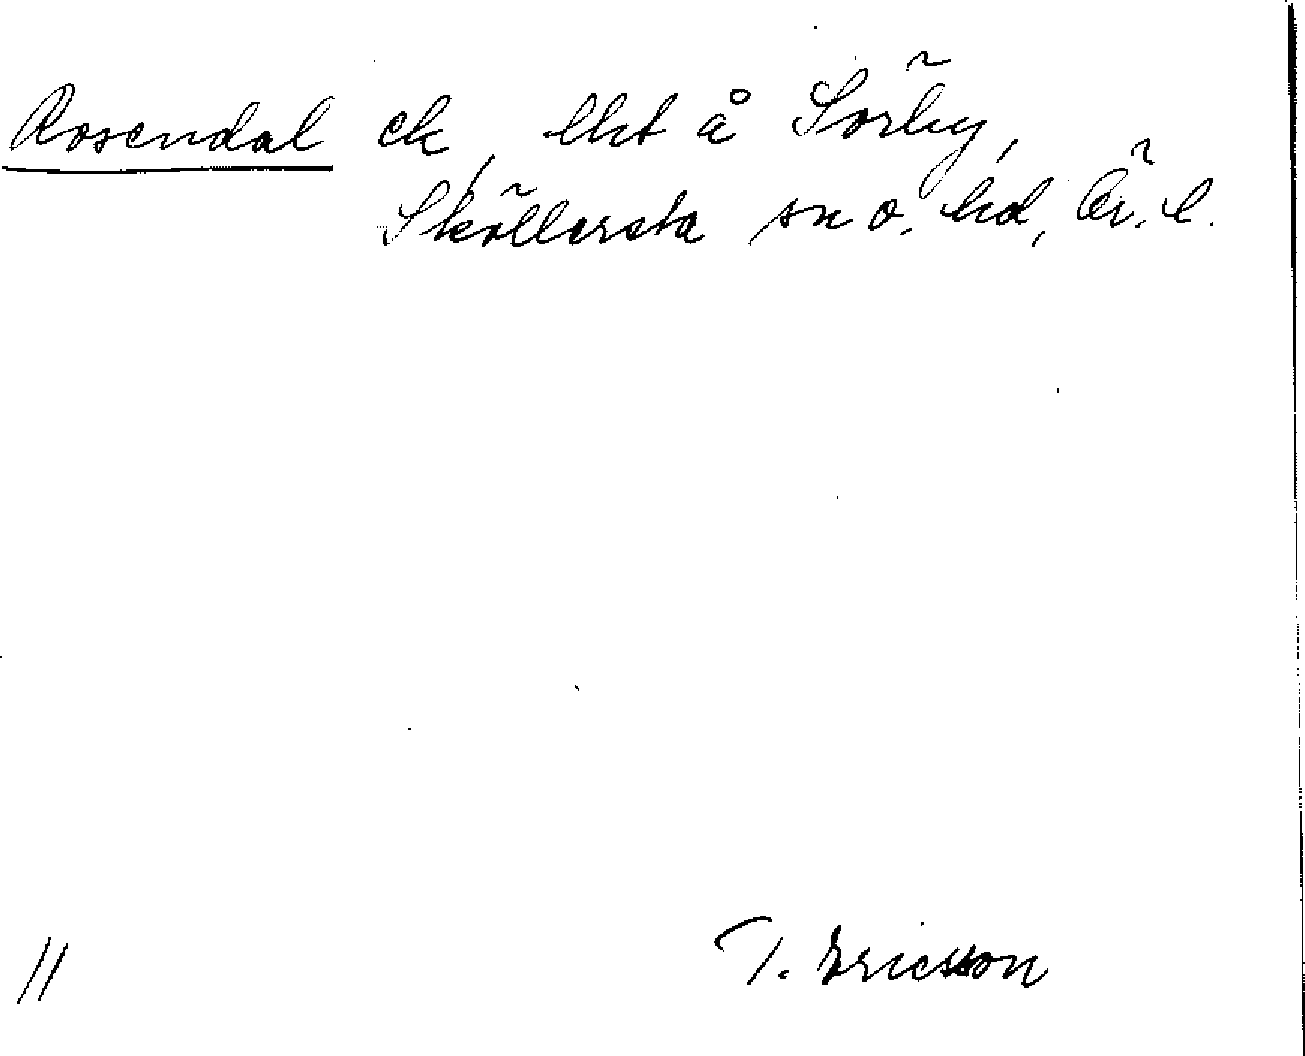 Rosendal ek, lht å Sörby,
Sköllersta sn o. hd, Ör. l.
T. Ericsson
11